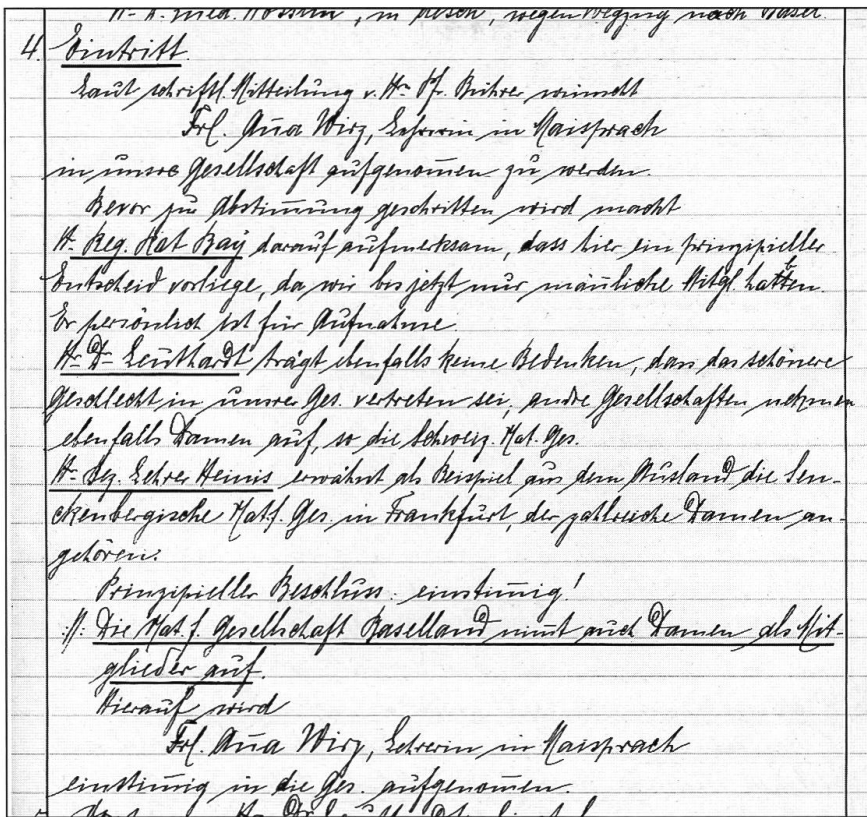 Hr. Dr. med. , in Aesch, wegen Wegzug nach Basel.
4. Eintritt.
Laut schriftl. Mitteilung v. Hr. Pf. Bührer wünscht
Frl. Aña Wirz, Lehrerin in Maisprach
in unsre Gesellschaft aufgenom̄en zu werden.
Bevor zur Abstim̄ung geschritten wird macht
Hr. Reg. Rat Baÿ darauf aufmerksam, dass hier ein prinzipieller
Entscheid vorliege, da wir bis jetzt nur män̄liche Mitgl. hatten.
Er persönlich ist für Aufnahme.
Hr. Dr. Leuthardt trägt ebenfalls keine Bedenken, dass das schönere
Geschlecht in unsrer Ges. vertreten sei; andre Gesellschaften nehmen
ebenfalls Damen auf, so die Schweiz. Nat. Ges.
Hr. Bez. Lehrer Heinis erwähnt als Beispiel aus dem Ausland die Sen-
ckenbergische Natf. Ges. in Frankfurt, der zahlreiche Damen an-
gehören.
Prinzipieller Beschluss: einstim̄ig!
:||: Die Nat. f. Gesellschaft Baselland nim̄t auch Damen als Mit-
glieder auf.
Hierauf wird
Frl. Aña Wirz, Lehrerin in Maisprach
einstim̄ig in die Ges. aufgenom̄en.